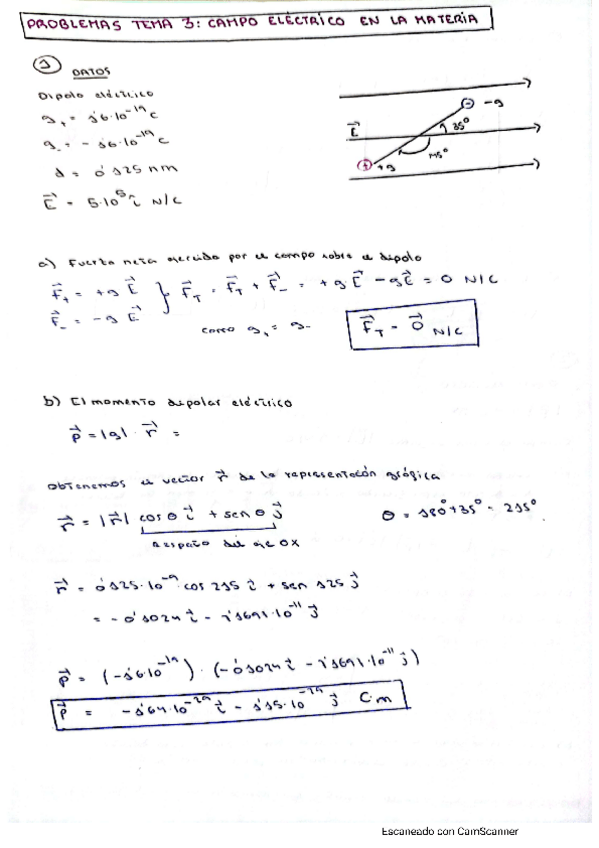 PROBLEMAS TEMA 3: CAMPO ELÉCTRICO EN LA MATERIA
1 DATOS
Dipolo eléctrico
q₊ = 1'6·10⁻¹⁹ C
q₋ = -1'6·10⁻¹⁹ C
d = 0'125 nm
E⃗ = 5·10⁵ î N/C
E⃗
⊖ -q
35°
145°
⊕ +q
a) Fuerza neta ejercida por el campo sobre el dipolo
F⃗₊ = +q E⃗ } F⃗_T = F⃗₊ + F⃗₋ = +q E⃗ - qE⃗ = 0 N/C
F⃗₋ = -q E⃗
como q₊ = q₋
F⃗_T = 0⃗ N/C
b) El momento dipolar eléctrico
p⃗ = |q| · r⃗ =
Obtenemos el vector r⃗ de la representación gráfica
r⃗ = |r⃗| cos θ i⃗ + sen θ j⃗
θ = 180° + 35° = 215°
Respecto del eje OX
r⃗ = 0'125·10⁻⁹ cos 215 i⃗ + sen 125 j⃗
= -0'1024 i⃗ - 7'1691·10⁻¹¹ j⃗
p⃗ = (-1'6·10⁻¹⁹) · (-0'1024 i⃗ - 7'1691·10⁻¹¹ j⃗)
p⃗ = -1'64·10⁻²⁹ i⃗ - 1'15·10⁻²⁹ j⃗ C·m
Escaneado con CamScanner